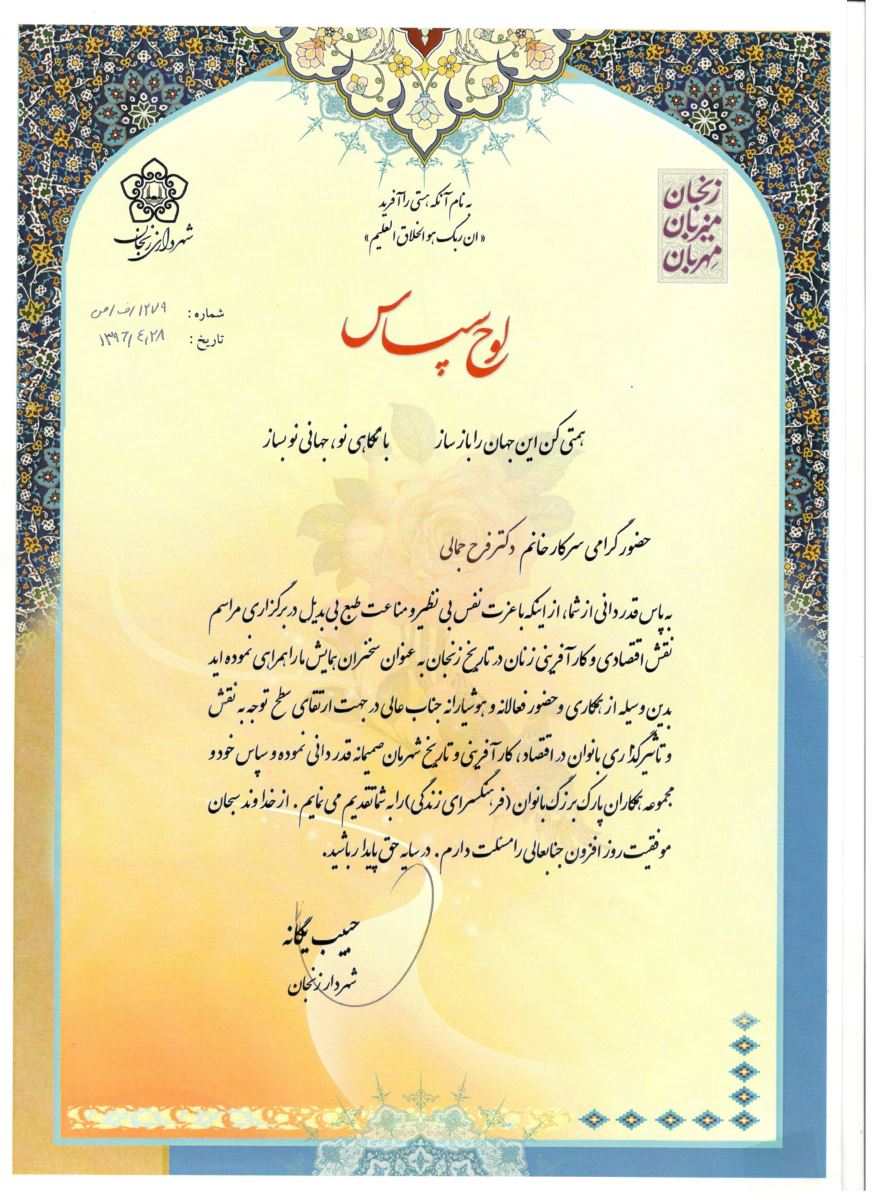 به نام آنکه هستی را آفرید
«ان ربک هو الخلاق العلیم»
زنجان
میزبان
مهربان
شهرداری زنجان
شماره : ۱۲۷۹/ف/ص
تاریخ : ۱۳۹۶/۴/۲۸
لوح سپاس
همتی کن این جهان را باز ساز با نگاهی نو، جهانی نو بساز
حضور گرامی سرکار خانم دکتر فرح جمالی
به پاس قدردانی از شما، از اینکه با عزت نفس بی نظیر و مناعت طبع بی بدیل در برگزاری مراسم
نقش اقتصادی و کارآفرینی زنان در تاریخ زنجان به عنوان سخنران همایش ما را همراهی نموده اید
بدین وسیله از همکاری و حضور فعالانه و هوشیارانه جناب عالی در جهت ارتقای سطح توجه به نقش
و تاثیرگذاری بانوان در اقتصاد، کارآفرینی و تاریخ شهرمان صمیمانه قدردانی نموده و سپاس خود و
مجموعه همکاران پارک بزرگ بانوان (فرهنگسرای زندگی) را به شما تقدیم می نمایم . از خداوند سبحان
موفقیت روز افزون جنابعالی را مسئلت دارم . در سایه حق پایدار باشید.
حبیب یگانه
شهردار زنجان